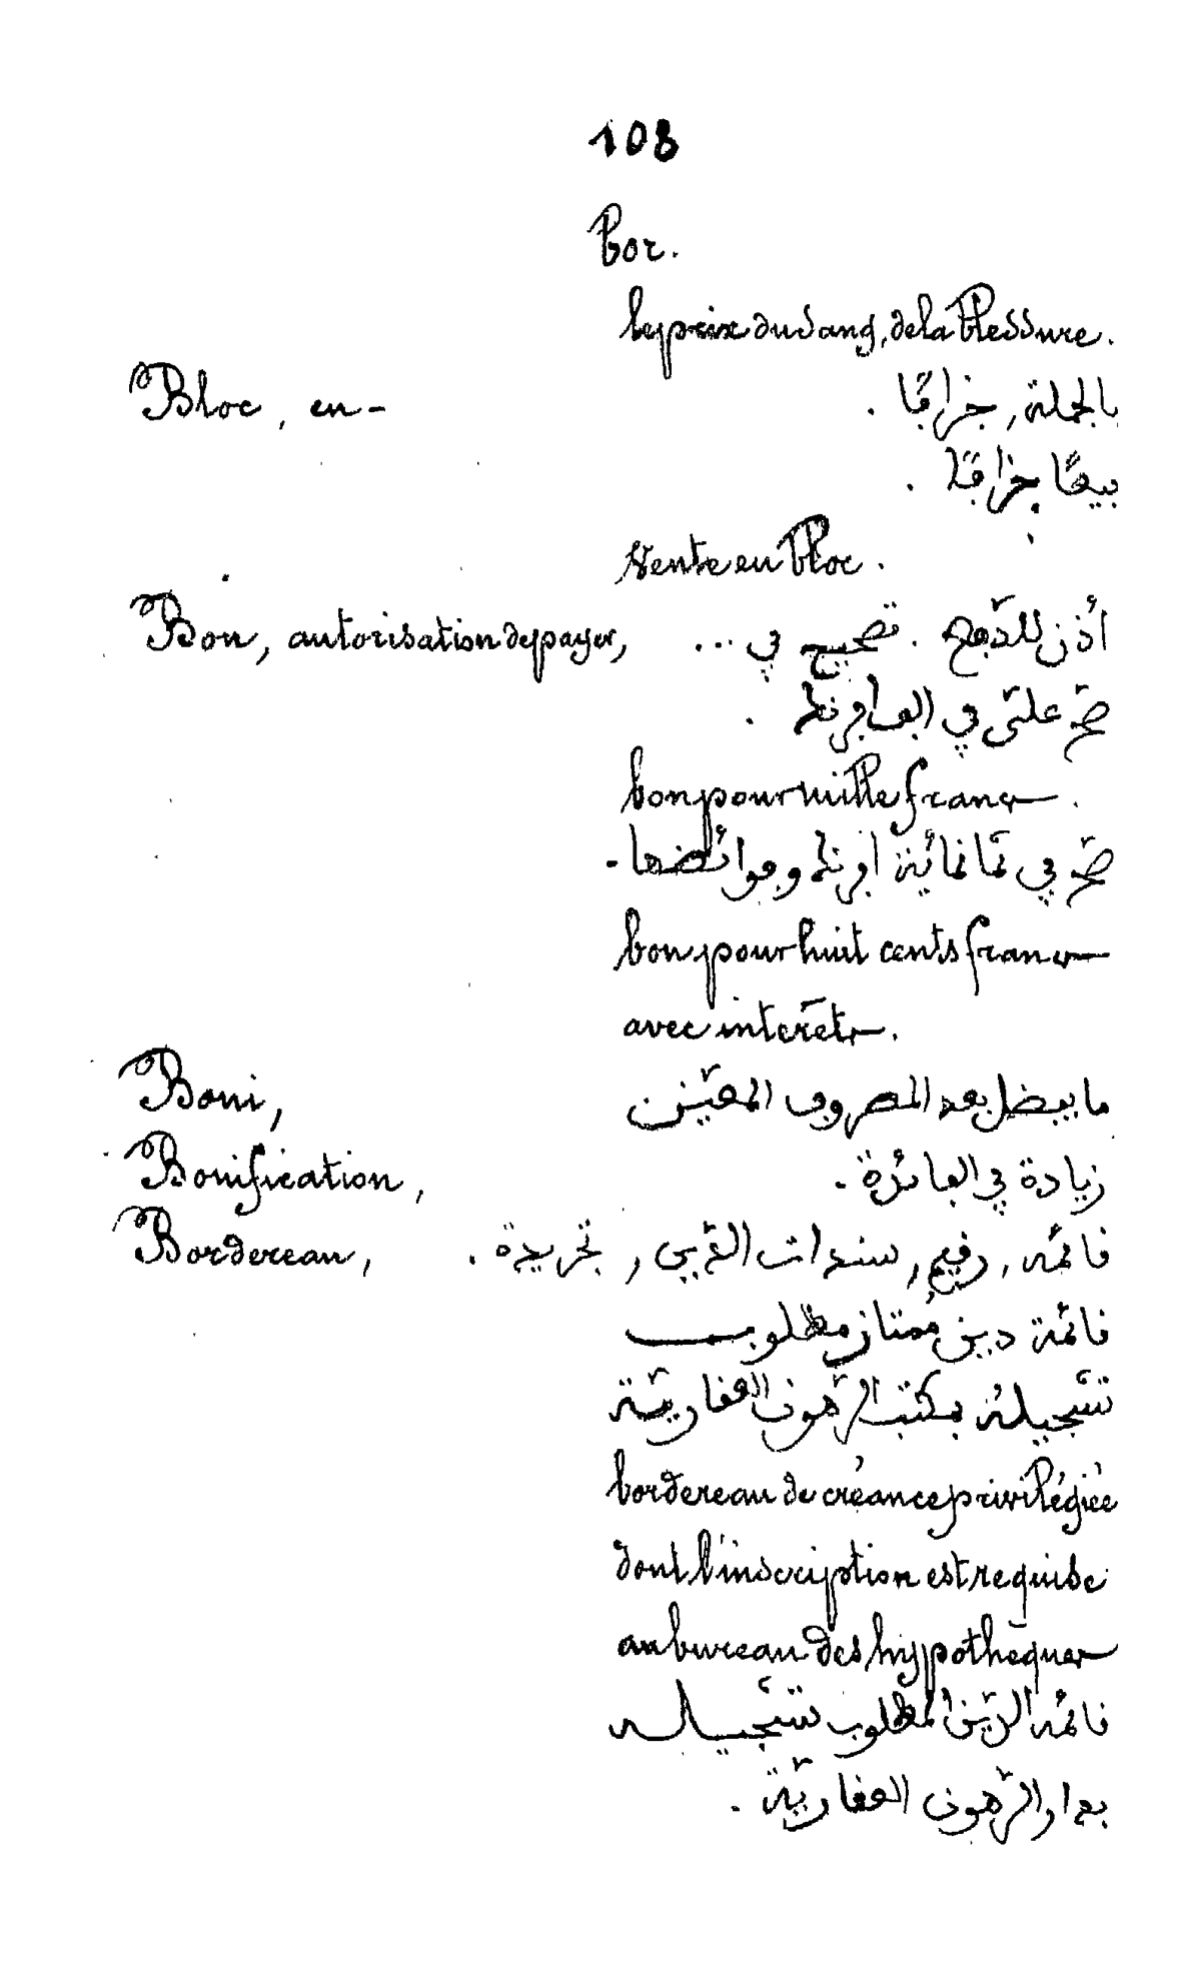 108
Bor.
le prix du sang, de la blessure.
Bloc, en- بالجملة, جزافًا .
بيعًا جزافًا .
vente en bloc.
Bon, autorisation de payer, أذن للدّفع . تصحيح في ...
صحّ علىّ في الف افرنك .
bon pour mille francs.
صحّ في ثمانمائة افرنك وفوائضها.
bon pour huit cents francs
avec intérêts.
Boni, ما يفضل بعد المصروف المعيّن
Bonification, زيادة في الفائزة.
Bordereau, قائمة, رقيم, سندات الدّين, تجريدة .
قائمة دين مُمتاز مطلوب
تسّجيلهُ بمكتب الرّهون العقاريّة
bordereau de créance privilégiée
dont l'inscription est requise
au bureau des hypothèques
قائمة الدّين المطلوب تسّجيله
بدار الرّهون العقاريّة .